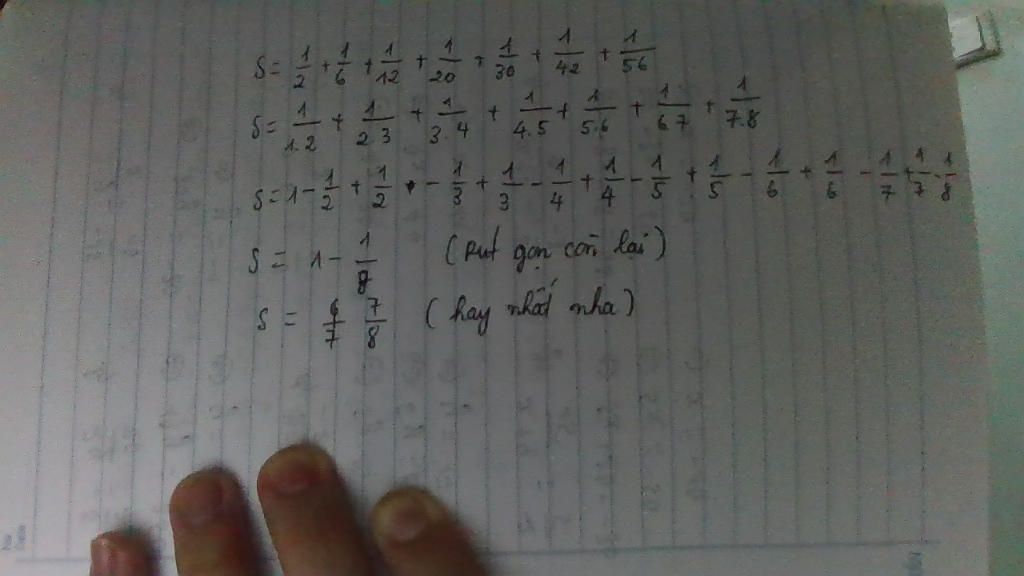 S = 1/2 + 1/6 + 1/12 + 1/20 + 1/30 + 1/42 + 1/56
S = 1/1.2 + 1/2.3 + 1/3.4 + 1/4.5 + 1/5.6 + 1/6.7 + 1/7.8
S = 1 - 1/2 + 1/2 - 1/3 + 1/3 - 1/4 + 1/4 - 1/5 + 1/5 - 1/6 + 1/6 - 1/7 + 1/7 - 1/8
S = 1 - 1/8 (rut gọn còn lại)
S = 6/7 7/8 (hay nhất nha)